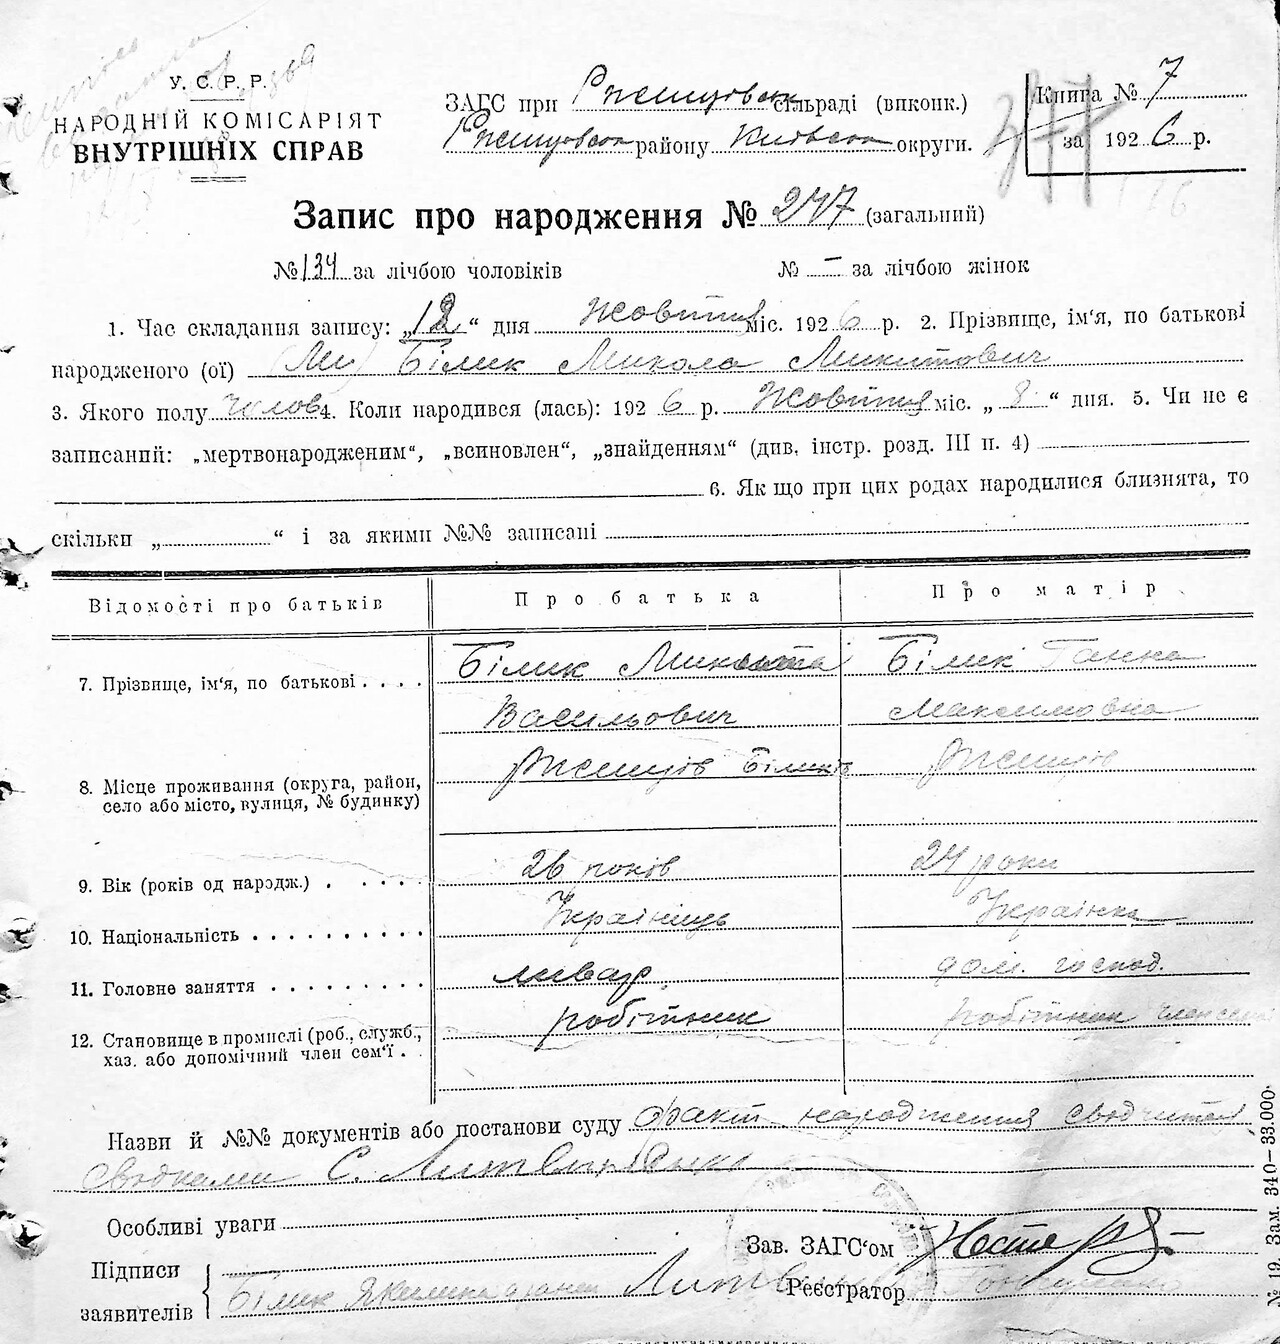 У. С. Р. Р.
НАРОДНІЙ КОМІСАРІЯТ
ВНУТРІШНІХ СПРАВ
ЗАГС при Ржищовськ сільраді (виконк.)
Ржищовськ району Київськ округи.
Книга № 7
за 1926 р.
Запис про народження № 247 (загальний)
№ 134 за лічбою чоловіків № – за лічбою жінок
1. Час складання запису: „12“ дня Жовтня міс. 1926 р. 2. Прізвище, ім'я, по батькові
народженого (ої) Білик Микола Микитович
3. Якого полу чолов 4. Коли народився (лась): 1926 р. Жовтня міс. „8“ дня. 5. Чи не є
записаний: „мертвонародженим“, „всиновлен“, „знайденням“ (див. інстр. розд. III п. 4)
6. Як що при цих родах народилися близнята, то
скільки „ “ і за якими №№ записані
Відомості про батьків Про батька Про матір
7. Прізвище, ім'я, по батькові . . . . Білик Микита Білик Ганна
Васильович Максимовна
8. Місце проживання (округа, район, село або місто, вулиця, № будинку) Ржищів Біликів Ржищів
9. Вік (років од народж.) . . . . . 26 років 24 роки
10. Національність . . . . . . . . . . Українець Українка
11. Головне заняття . . . . . . . . . ливар дом. господ.
12. Становище в промислі (роб., служб., хаз. або допомічний член сем'ї . . робітник робітник член сем
Назви й №№ документів або постанови суду факт народження сводчиться
сводками С. Литвиненко
Особливі уваги
Зав. ЗАГС'ом
Підписи
заявителів Білик Литв
Реєстратор
№ 19. Зам. 340—33.000.